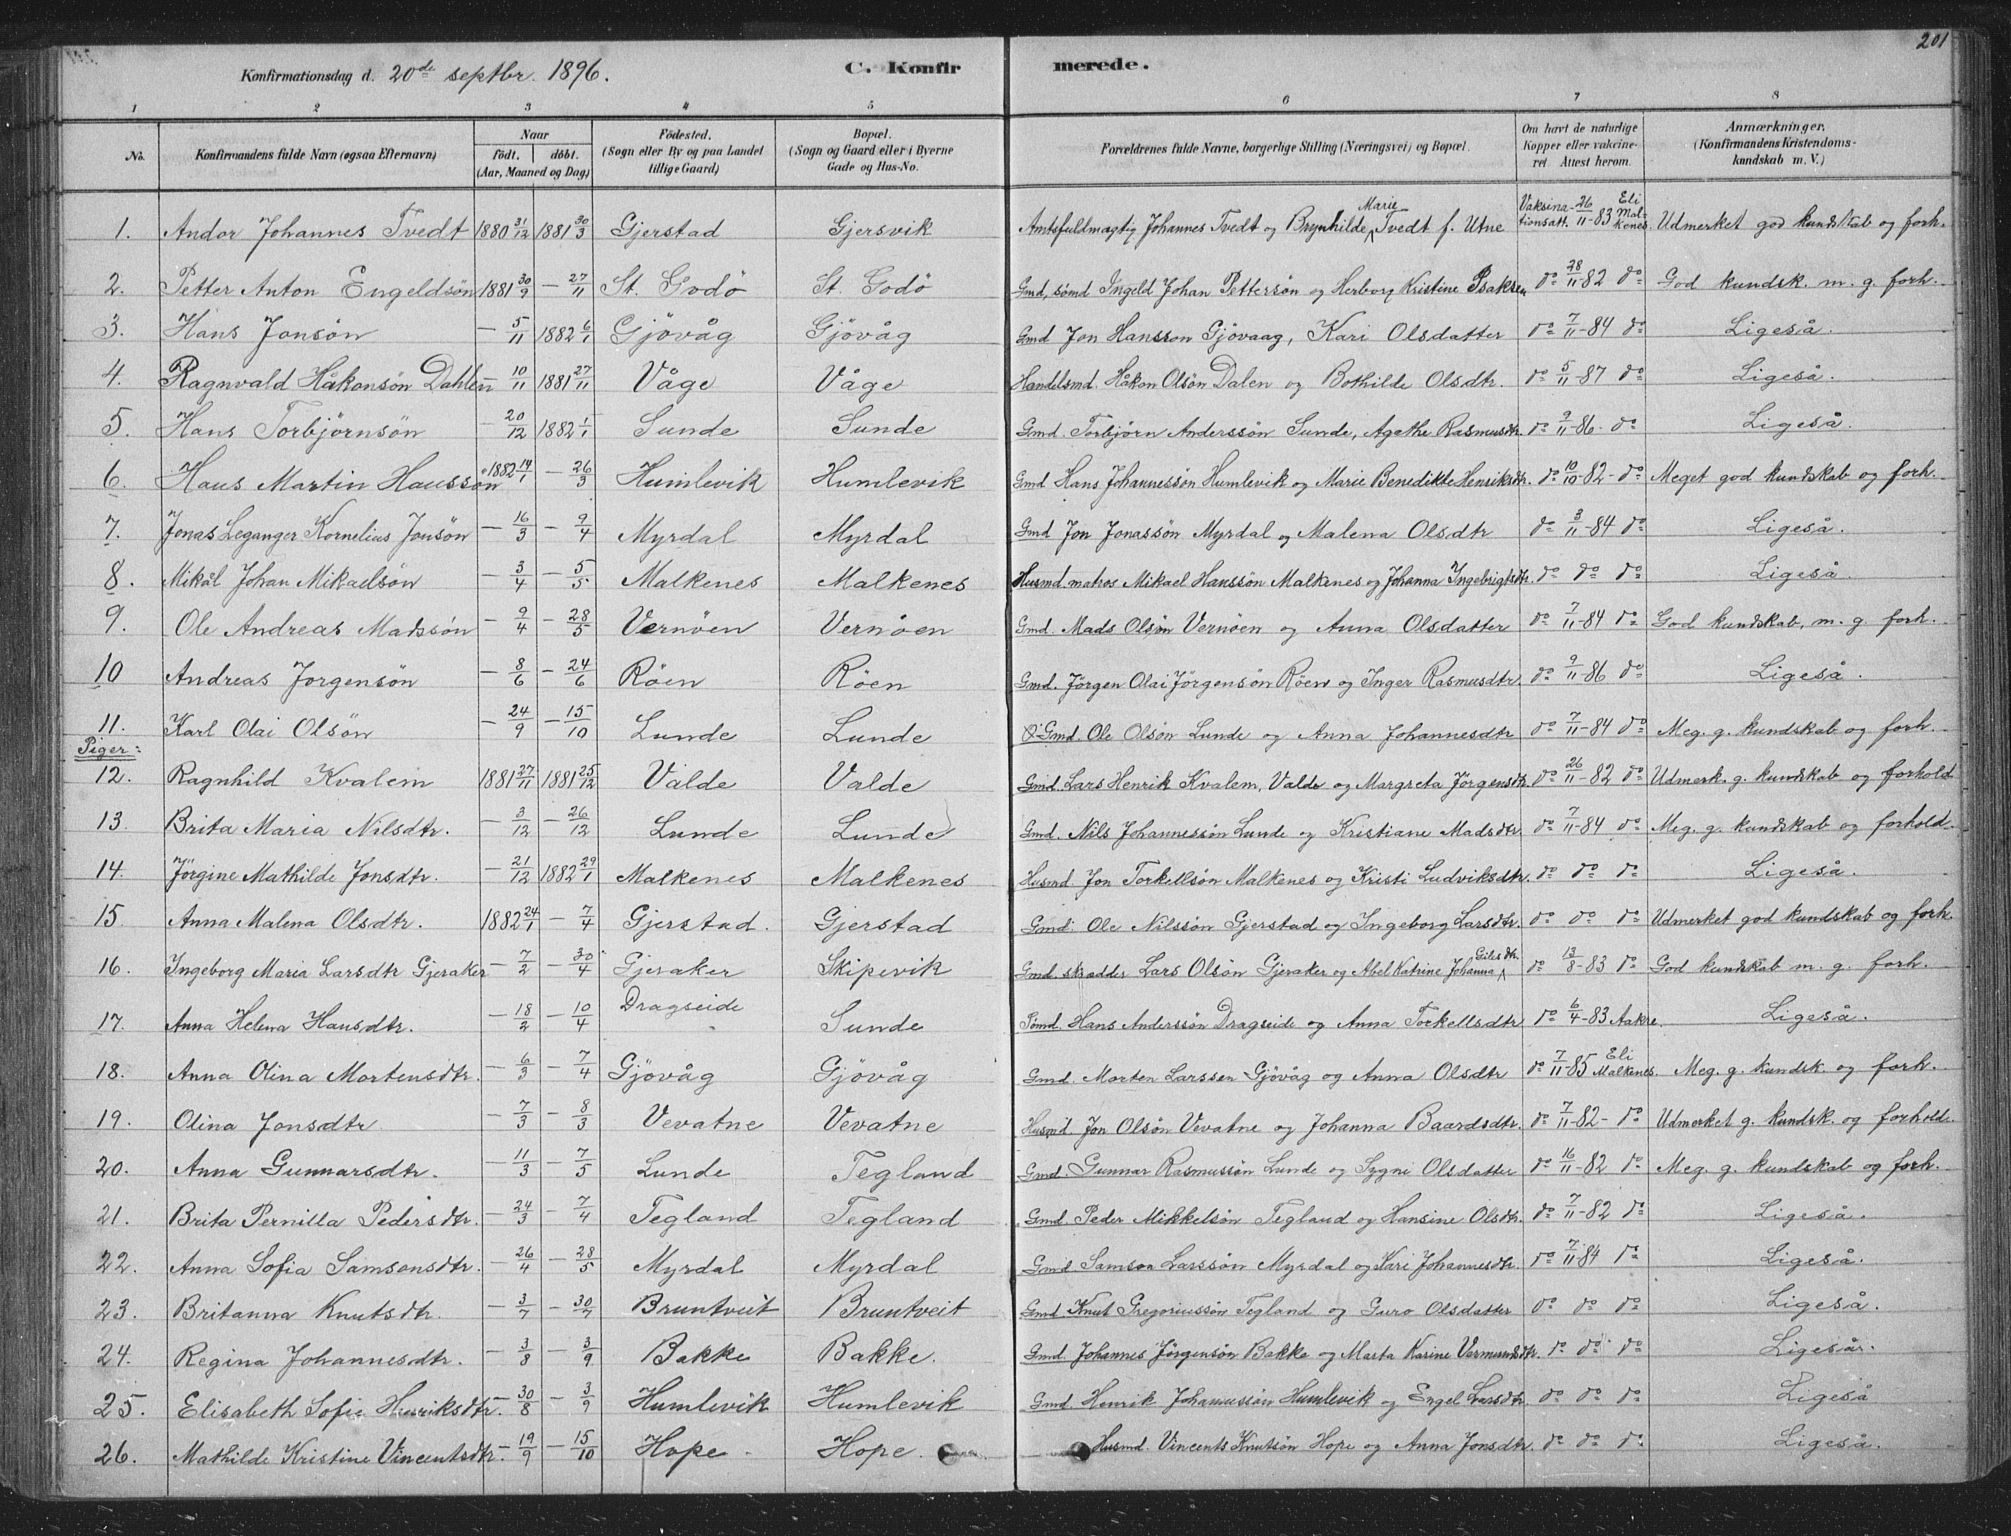 201
Konfirmationsdag d. 20de septbr. 1896. C. Konfirmerede.
1 2 3 4 5 6 7 8
No. Konfirmandens fulde Navn (ogsaa Efternavn) Naar født. døbt. (Aar, Maaned og Dag) Födested. (Sogn eller By og paa Landet tillige Gaard) Bopæl. (Sogn og Gaard eller i Byerne Gade og Hus-No. Forældrenes fulde Navne, borgerlige Stilling (Næringsvei) og Bopæl. Om havt de naturlige Kopper eller vakcineret. Attest herom. Anmærkninger. (Konfirmandens Kristendomskundskab m. V.)
1. Andor Johannes Tvedt 1880 31/12 1881 30/3 Gjerstad Gjersvik Amtsfuldmægtig Johannes Tvedt og Brynhilde Marie Tvedt f. Utne Vaksinationsatt. 26/11-83 Eli Malkenes. Udmerket god kundskab og forh.
2. Petter Anton Engeldsön 1881 30/9 - 27/11 St. Godö St. Godö Gmd, sömd Ingeld Johan Pettersön og Herborg Kristine Isaksen do 28/11-82 do God kundsk. m. g. forh.
3. Hans Jonsön - 5/11 1882 6/1 Gjövåg Gjövåg Gmd Jon Hansson Gjövaag, Kari Olsdatter do 7/11-84 do Ligeså.
4. Ragnvald Håkonsön Dahlen - 10/11 1881 27/11 Våge Våge Handelsmd. Håkon Olsön Dalen og Bothilde Olsdtr. do 5/11-87 do Ligeså.
5. Hans Torbjörnsön - 20/12 1882 1/1 Sunde Sunde Gmd. Torbjörn Anderssön Sunde, Agathe Rasmusdtr. do 9/11-86. do Ligeså.
6. Hans Martin Hanssön 1882 14/1 - 26/3 Humlevik Humlevik Gmd Hans Johannessön Humlevik og Marie Benedikte Henriksdtr. do 10/10-82- do Meget god kundskab og forh.
7. Jonas Leganger Kornelius Jonsön - 16/3 - 9/4 Myrdal Myrdal Gmd Jon Jonassön Myrdal og Malena Olsdtr do 3/11-84 do Ligeså.
8. Mikål Johan Mikaelsön - 3/4 - 5/5 Malkenes Malkenes Husmd. matros Mikael Hanssön Malkenes og Johanna Ingebrigtsdtr. do do do Ligeså.
9. Ole Andreas Madssön - 9/4 - 28/5 Vernöen Vernöen Gmd. Mads Olsön Vernöen og Anna Olsdatter do 7/11-84 do God kundskab, m. g. forh.
10 Andreas Jorgensön - 8/6 - 24/6 Röen Röen Gmd. Jörgen Olai Jörgensön Röen og Inger Rasmusdtr. do 9/11-86 do Ligeså.
11. Karl Olai Olsön - 24/9 - 15/10 Lunde Lunde Gmd. Ole Olsön Lunde og Anna Johannesdtr do 7/11-84 do Meg. g. kundskab og forh.
Piger:
12. Ragnhild Kvalem 1881 27/11 1881 25/12 Valde Valde Gmd. Lars Henrik Kvalem, Valde og Margreta Jörgensdtr do 26/11-82 do Udmerk. g. kundskab og forhold
13. Brita Maria Nilsdtr. - 3/12 - 26/12 Lunde Lunde Gmd. Nils Johannessön Lunde og Kristiane Madsdtr. do 7/11-84 do Meg. g. kundskab og forhold.
14. Jörgine Mathilde Jonsdtr. - 21/12 1882 29/1 Malkenes Malkenes Husmd Jon Torkellsön Malkenes og Kristi Ludviksdtr. do do do Ligeså.
15 Anna Malena Olsdtr. 1882 24/1 - 7/4 Gjerstad. Gjerstad Gmd. Ole Nilssön Gjerstad og Ingeborg Larsdtr. do do do Udmerket god kundskab og forh.
16. Ingeborg Maria Larsdtr Gjeraker - 7/2 - 30/4 Gjeraker Skipevik Gmd. skrædder Lars Olsön Gjeraker og Abel Katrine Johanna Gilesdtr. do 13/8-83 do God kundskab m. g. forh.
17. Anna Helena Hansdtr. - 18/2 - 10/4 Dragseide Sunde Sömd. Hans Anderssön Dragseide og Anna Torkellsdtr do 6/4-83 Aakre. Ligeså.
18. Anna Olina Mortensdtr. - 6/3 - 7/4 Gjövåg Gjövåg Gmd. Morten Larssen Gjövåg og Anna Olsdtr do 7/11-85 Eli Malkenes. Meg. g. kundsk. og forh.
19. Olina Jonsdtr - 7/3 - 8/3 Vevatne Vevatne Husmd Jon Olsön Vevatne og Johanna Baardsdtr. do 7/11-82- do Udmerket g. kundsk. og forhold.
20. Anna Gunnarsdtr. - 11/3 - 7/5 Lunde Tegland Gmd. Gunnar Rasmussön Lunde og Sygni Olsdatter do 16/11-82 do Meg. g. kundskab og forh.
21. Brita Pernilla Pedersdtr. - 24/3 - 7/4 Tegland Tegland Gmd. Peder Mikkelsön Tegland og Hansine Olsdtr. do 7/11-82 do Ligeså.
22. Anna Sofia Samsonsdtr. - 26/4 - 28/5 Myrdal Myrdal Gmd Samson Larssön Myrdal og Kari Johannesdtr. do 7/11-84 do Ligeså.
23. Britanna Knutsdtr. - 3/7 - 30/7 Bruntveit Bruntveit Gmd Knut Gregoriussön Tegland og Guro Olsdatter do do do Ligeså.
24. Regina Johannesdtr. - 3/8 - 3/9 Bakke Bakke. Gmd. Johannes Jörgensön Bakke og Marta Karine Vermundsdtr. do do do Ligeså.
25. Elisabeth Sofie Henriksdtr. - 30/8 - 3/9 Humlevik Humlevik Gmd Henrik Johannessön Humlevik og Engel Larsdtr do do do Ligeså
26. Mathilde Kristine Vincentsdtr. - 19/9 - 15/10 Hope Hope. Husmd. Vincents Knutsön Hope og Anna Jonsdtr. do do do Ligeså.